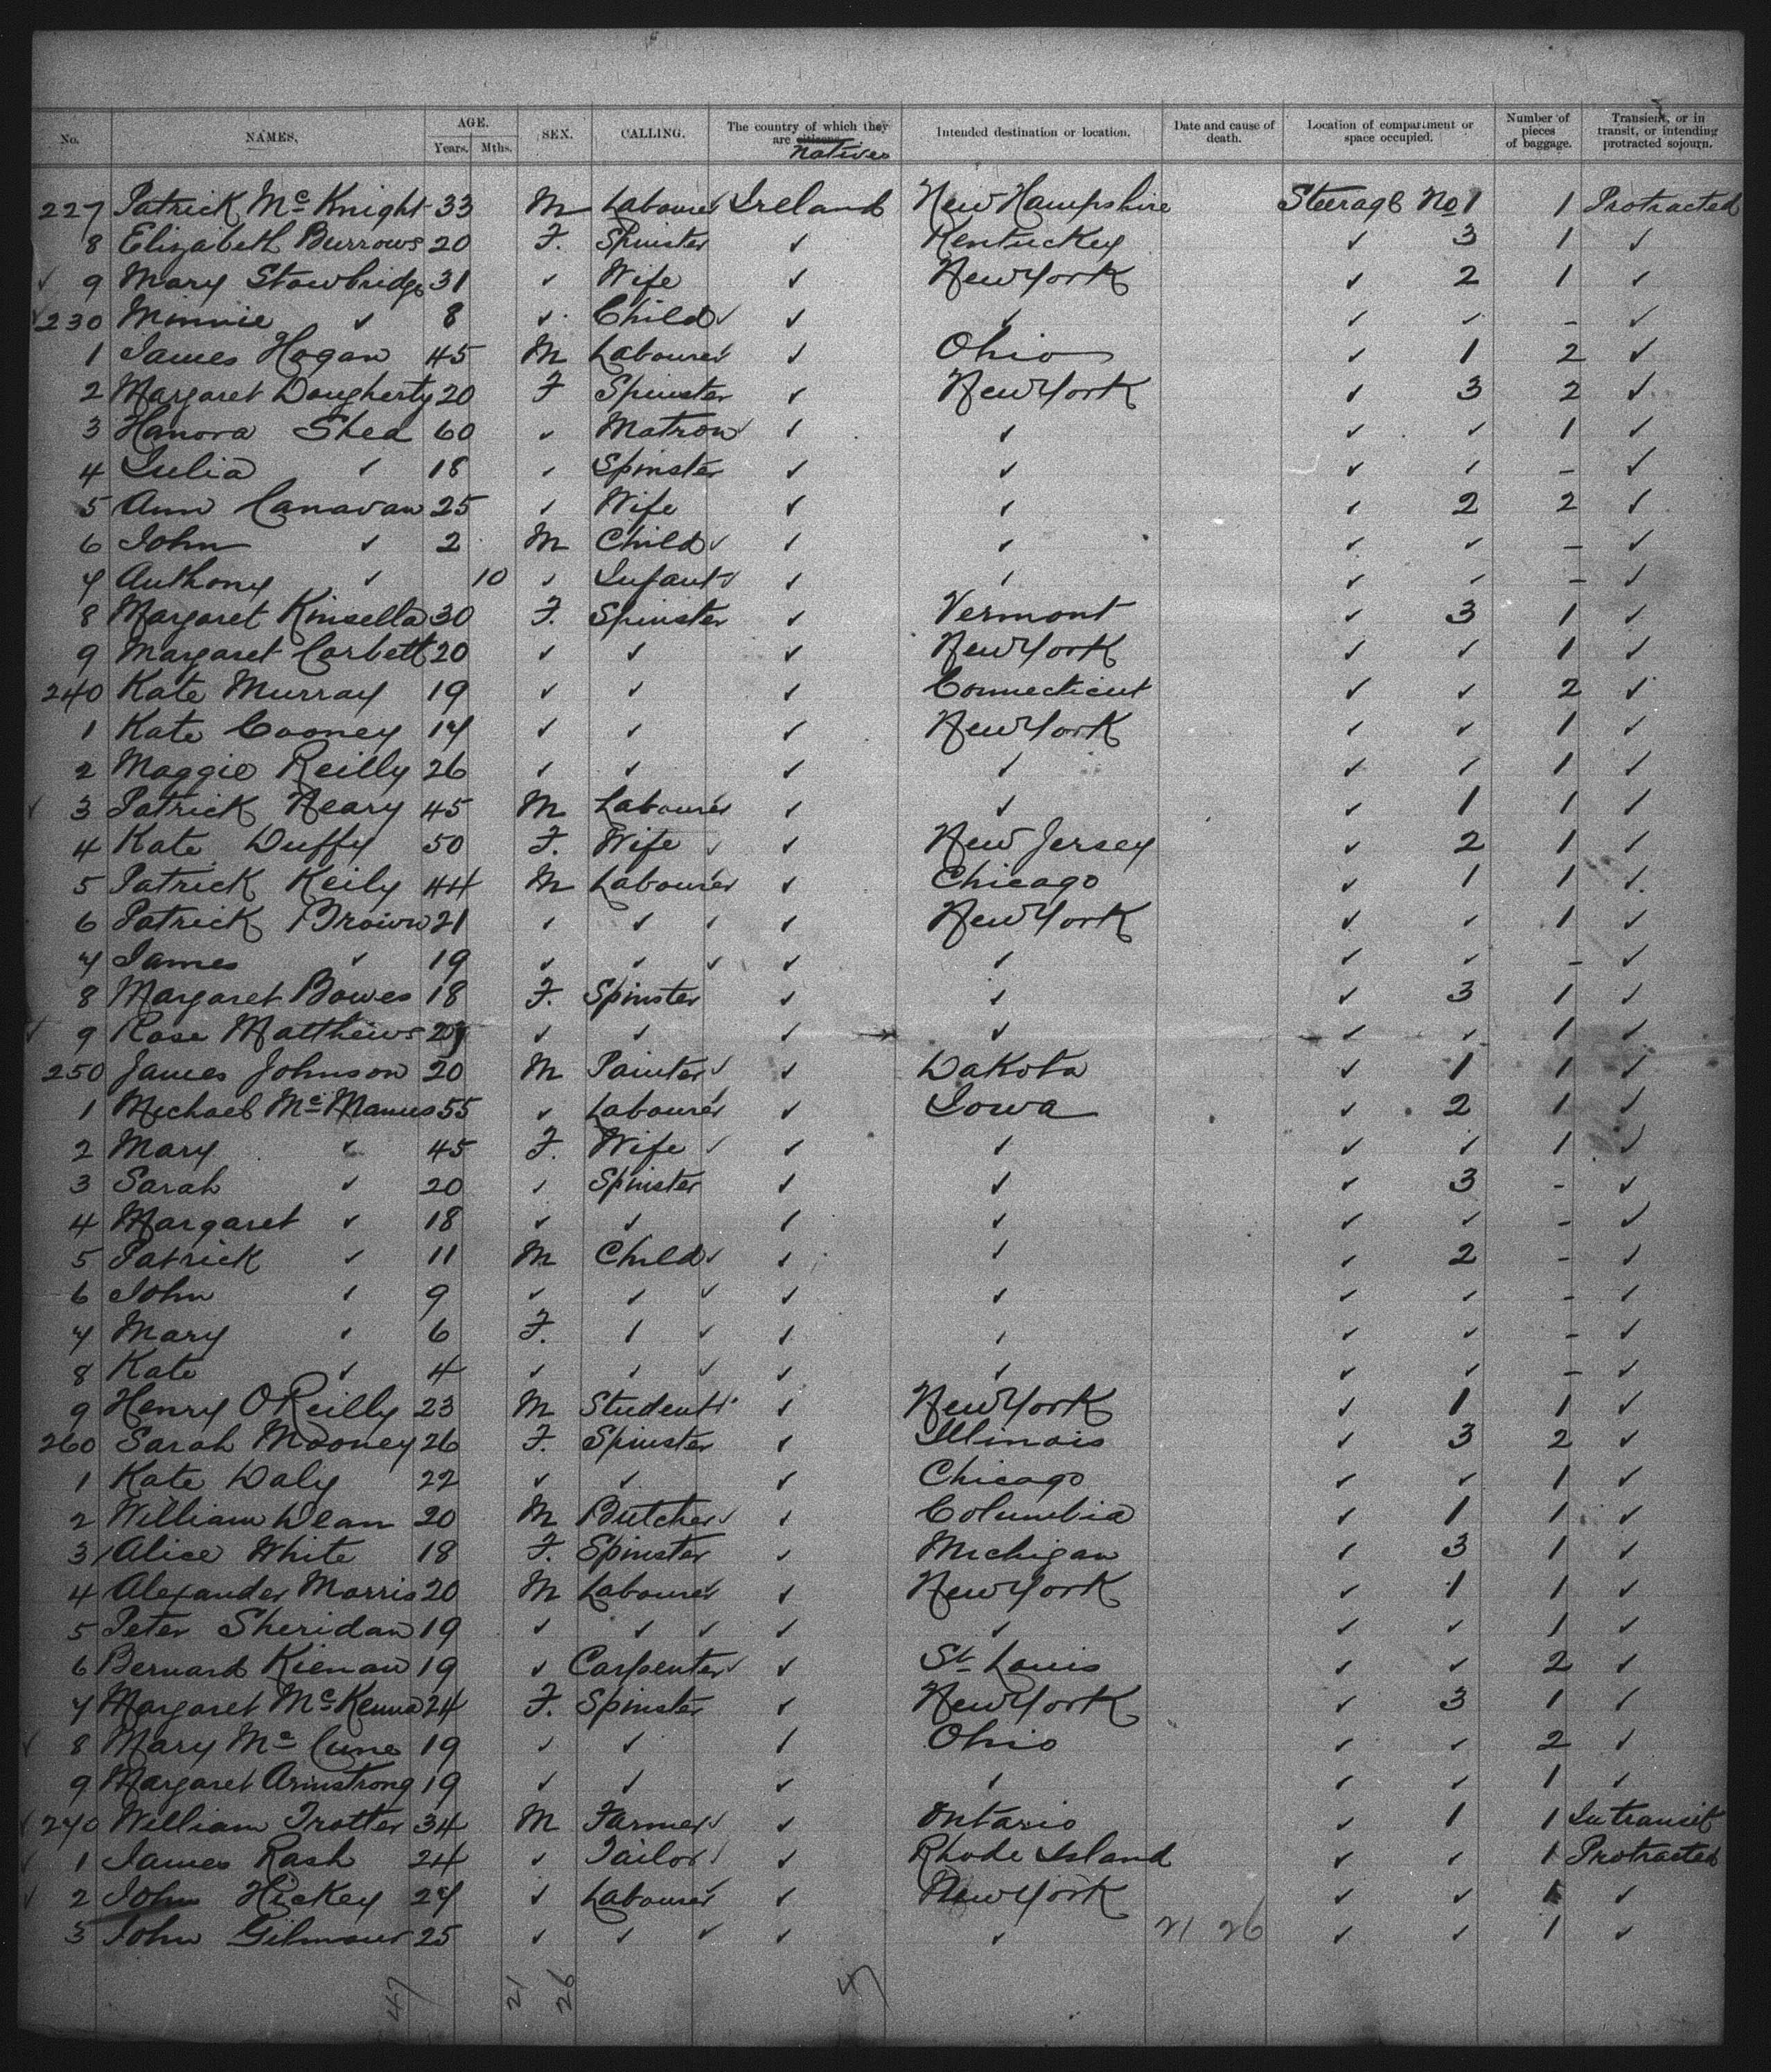 No. NAMES. AGE. Years. Mths. SEX. CALLING. The country of which they are citizens natives Intended destination or location. Date and cause of death. Location of compartment or space occupied. Number of pieces of baggage. Transient, or in transit, or intending protracted sojourn.
227 Patrick McKnight 33 M Labourer Ireland New Hampshire Steerage No 1 1 Protracted
8 Elizabeth Burrows 20 F. Spinster ✓ Kentucky ✓ 3 1 ✓
✓ 9 Mary Stowbridge 31 ✓ Wife ✓ New York ✓ 2 1 ✓
✓ 230 Minnie ✓ 8 ✓ Child ✓ ✓ ✓ ✓ ✓ - ✓
1 James Hogan 45 M Labourer ✓ Ohio ✓ 1 2 ✓
2 Margaret Dougherty 20 F Spinster ✓ New York ✓ 3 2 ✓
3 Hanora Shea 60 ✓ Matron ✓ ✓ ✓ ✓ 1 ✓
4 Julia ✓ 18 ✓ Spinster ✓ ✓ ✓ ✓ - ✓
5 Ann Canavan 25 ✓ Wife ✓ ✓ ✓ 2 2 ✓
6 John ✓ 2 M Child ✓ ✓ ✓ ✓ ✓ - ✓
7 Anthony ✓ 10 ✓ Infant ✓ ✓ ✓ ✓ ✓ - ✓
8 Margaret Kinsella 30 F. Spinster ✓ Vermont ✓ 3 1 ✓
9 Margaret Corbett 20 ✓ ✓ ✓ New York ✓ ✓ 1 ✓
240 Kate Murray 19 ✓ ✓ ✓ Connecticut ✓ ✓ 2 ✓
1 Kate Cooney 17 ✓ ✓ ✓ New York ✓ ✓ 1 ✓
2 Maggie Reilly 26 ✓ ✓ ✓ ✓ ✓ ✓ 1 ✓
✓ 3 Patrick Neary 45 M Labourer ✓ ✓ ✓ 1 1 ✓
4 Kate Duffy 50 F. Wife ✓ ✓ New Jersey ✓ 2 1 ✓
5 Patrick Keily 44 M Labourer ✓ Chicago ✓ 1 1 ✓
6 Patrick Brown 21 ✓ ✓ ✓ ✓ New York ✓ ✓ 1 ✓
7 James ✓ 19 ✓ ✓ ✓ ✓ ✓ ✓ ✓ - ✓
8 Margaret Bowes 18 F. Spinster ✓ ✓ ✓ 3 1 ✓
✓ 9 Rose Matthews ✓ ✓ ✓ ✓ ✓ ✓ 1 ✓
250 James Johnson 20 M Painter ✓ ✓ Dakota ✓ 1 1 ✓
1 Michael McManus 55 ✓ Labourer ✓ Iowa ✓ 2 1 ✓
2 Mary ✓ 45 F. Wife ✓ ✓ ✓ ✓ ✓ 1 ✓
3 Sarah ✓ 20 ✓ Spinster ✓ ✓ ✓ 3 - ✓
4 Margaret ✓ 18 ✓ ✓ ✓ ✓ ✓ ✓ - ✓
5 Patrick ✓ 11 M Child ✓ ✓ ✓ ✓ 2 - ✓
6 John ✓ 9 ✓ ✓ ✓ ✓ ✓ ✓ ✓ - ✓
7 Mary ✓ 6 F. ✓ ✓ ✓ ✓ ✓ ✓ - ✓
8 Kate ✓ 4 ✓ ✓ ✓ ✓ ✓ ✓ ✓ - ✓
9 Henry O'Reilly 23 M Student ✓ ✓ New York ✓ 1 1 ✓
260 Sarah Mooney 26 F. Spinster ✓ Illinois ✓ 3 2 ✓
1 Kate Daly 22 ✓ ✓ ✓ Chicago ✓ ✓ 1 ✓
2 William Dean 20 M Butcher ✓ ✓ Columbia ✓ 1 1 ✓
3 Alice White 18 F. Spinster ✓ Michigan ✓ 3 1 ✓
4 Alexander Morris 20 M Labourer ✓ New York ✓ 1 1 ✓
5 Peter Sheridan 19 ✓ ✓ ✓ ✓ ✓ ✓ ✓ 1 ✓
6 Bernard Kienan 19 ✓ Carpenter ✓ ✓ St Louis ✓ ✓ 2 ✓
7 Margaret McKenna 24 F. Spinster ✓ New York ✓ 3 1 ✓
✓ 8 Mary McCune 19 ✓ ✓ ✓ Ohio ✓ ✓ 2 ✓
9 Margaret Armstrong 19 ✓ ✓ ✓ ✓ ✓ ✓ 1 ✓
✓ 270 William Trotter 34 M Farmer ✓ ✓ Ontario ✓ 1 1 In transit
✓ 1 James Rash 24 ✓ Tailor ✓ ✓ Rhode Island ✓ ✓ 1 Protracted
✓ 2 John Hickey 27 ✓ Labourer ✓ New York ✓ ✓ 1 ✓
3 John Gilmour 25 ✓ ✓ ✓ ✓ ✓ 21 26 ✓ ✓ 1 ✓
47 21 26 47